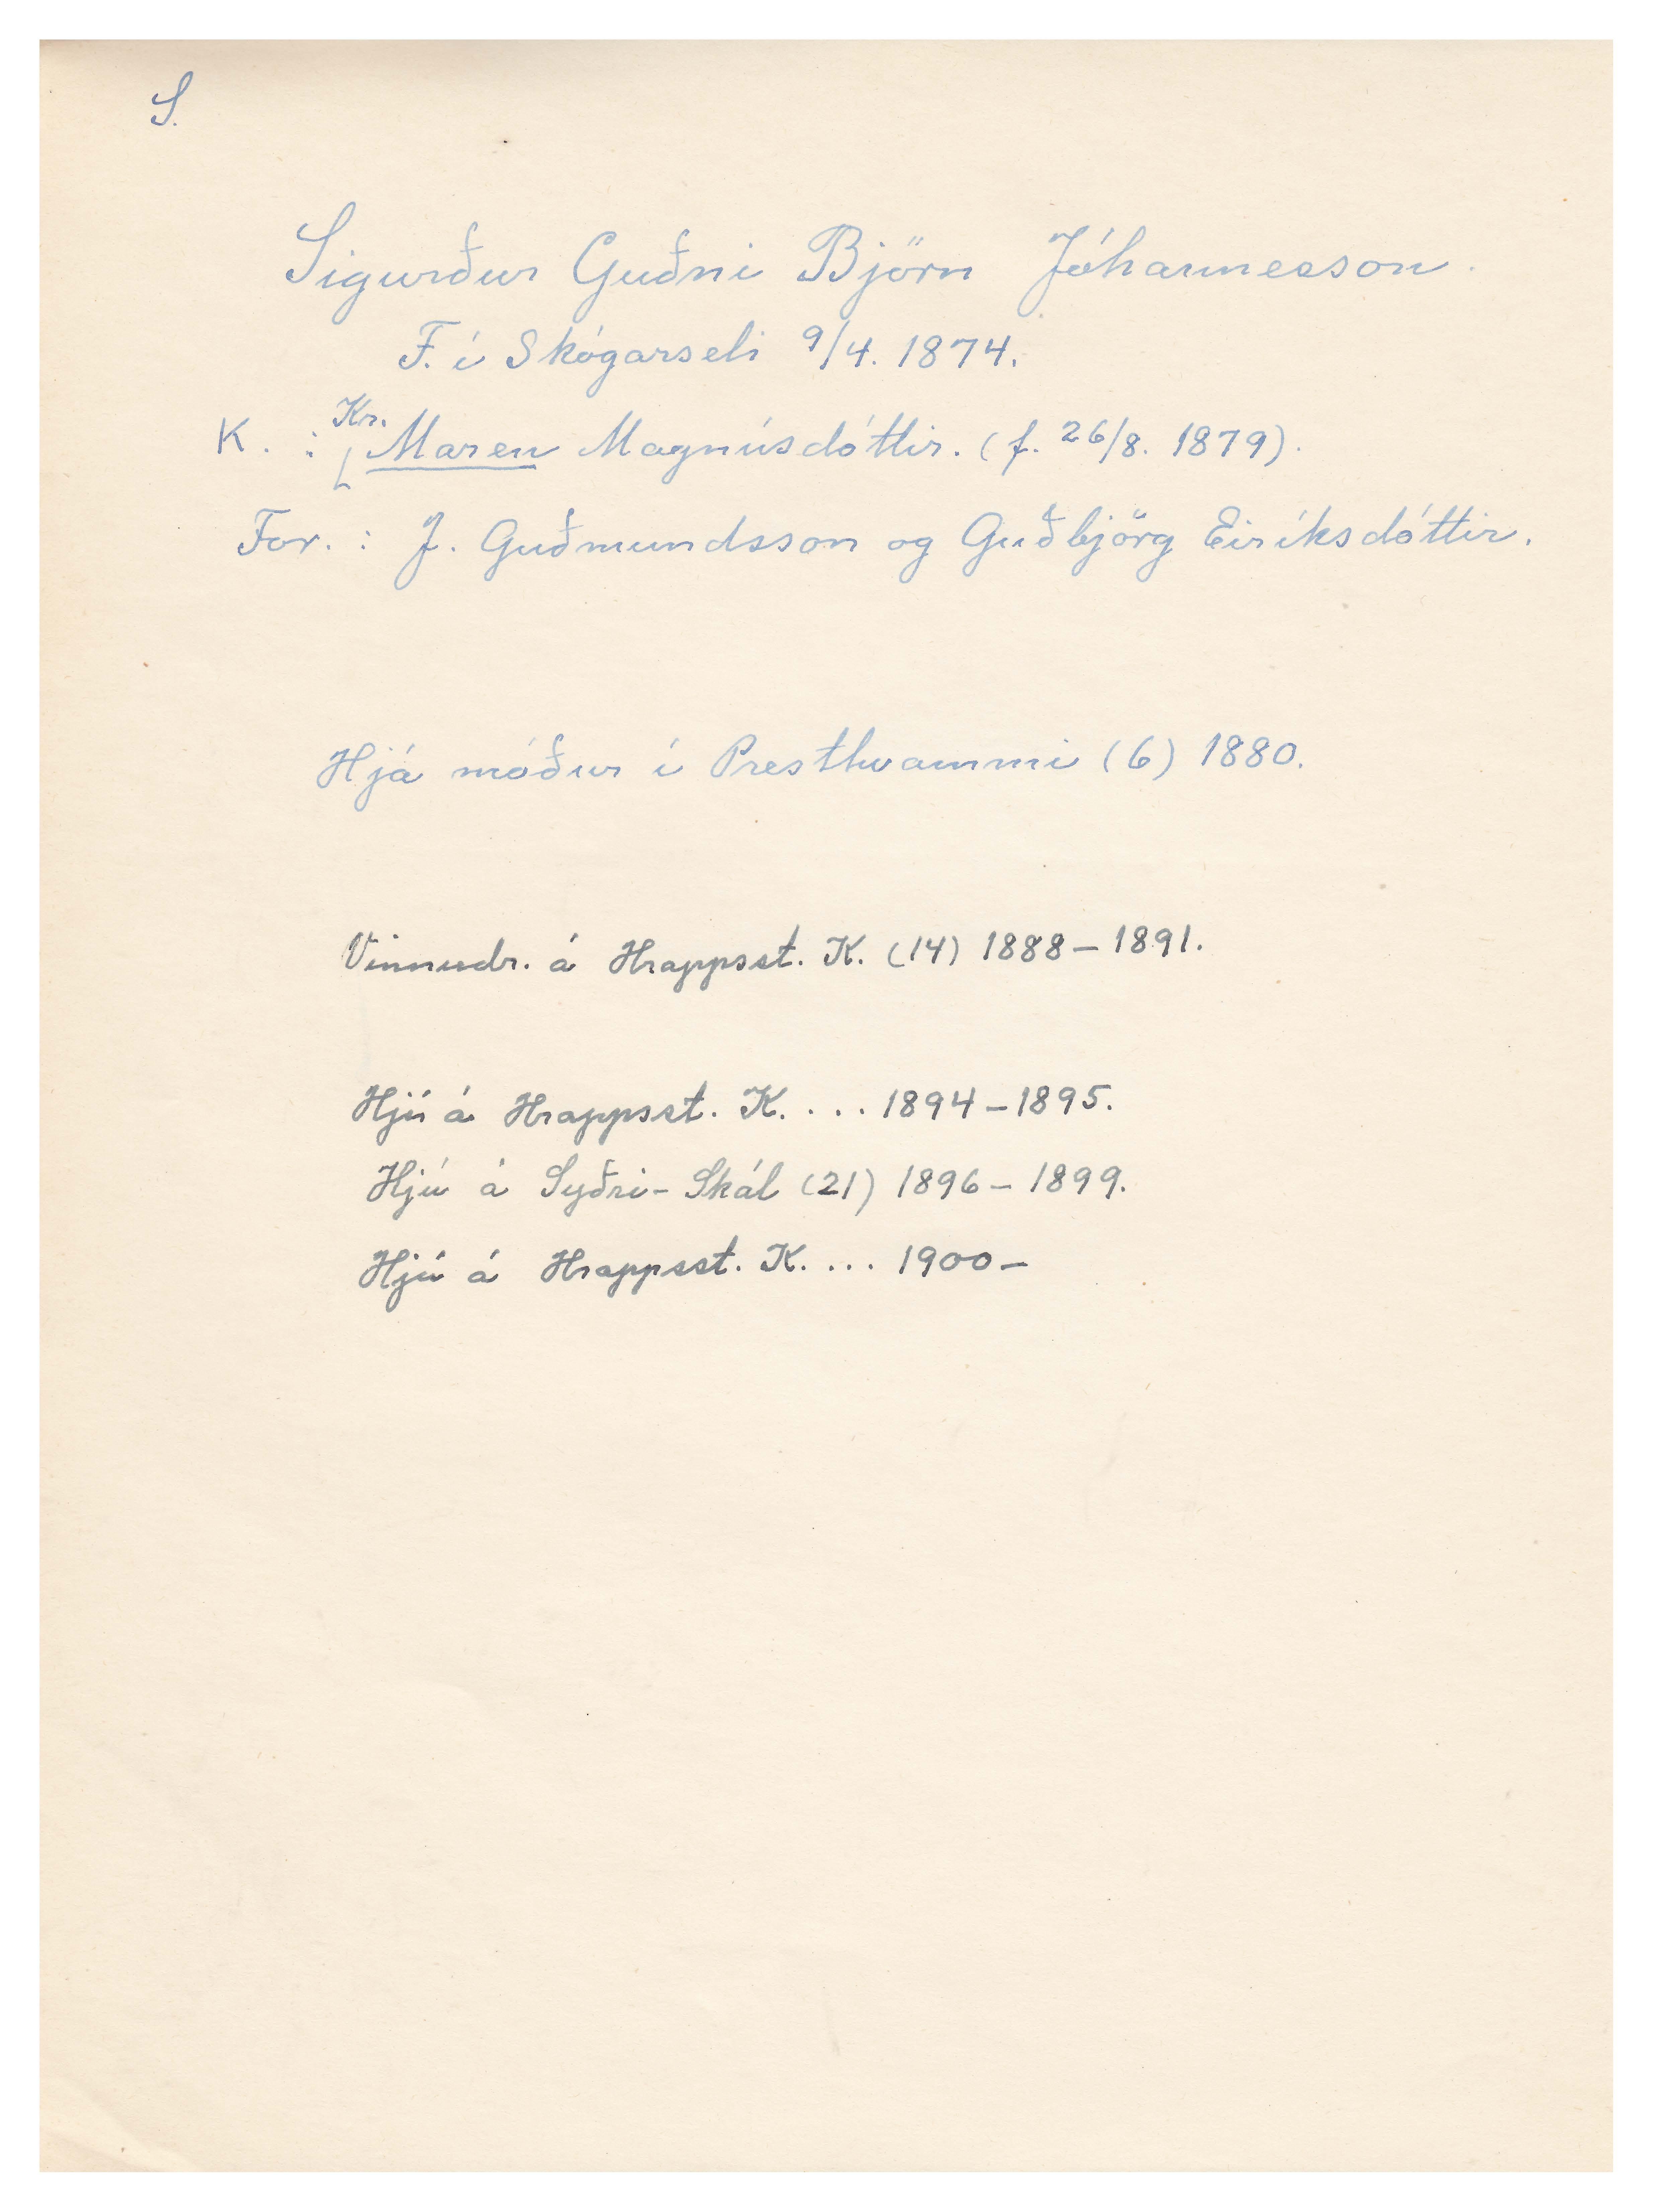 S.
Sigurður Guðni Björn Jóhannesson.
F. í Skógarseli 9/4. 1874.
K. : Kr. Maren Magnúsdóttir. (f. 26/8. 1879).
For. : J. Guðmundsson og Guðbjörg Eiríksdóttir.
Hjá móður í Presthvammi (6) 1880.
Vinnudr. á Hrappsst. K. (14) 1888 – 1891.
Hjú á Hrappsst. K. ... 1894 – 1895.
Hjú á Syðri-Skál (21) 1896 – 1899.
Hjú á Hrappsst. K. ... 1900 –